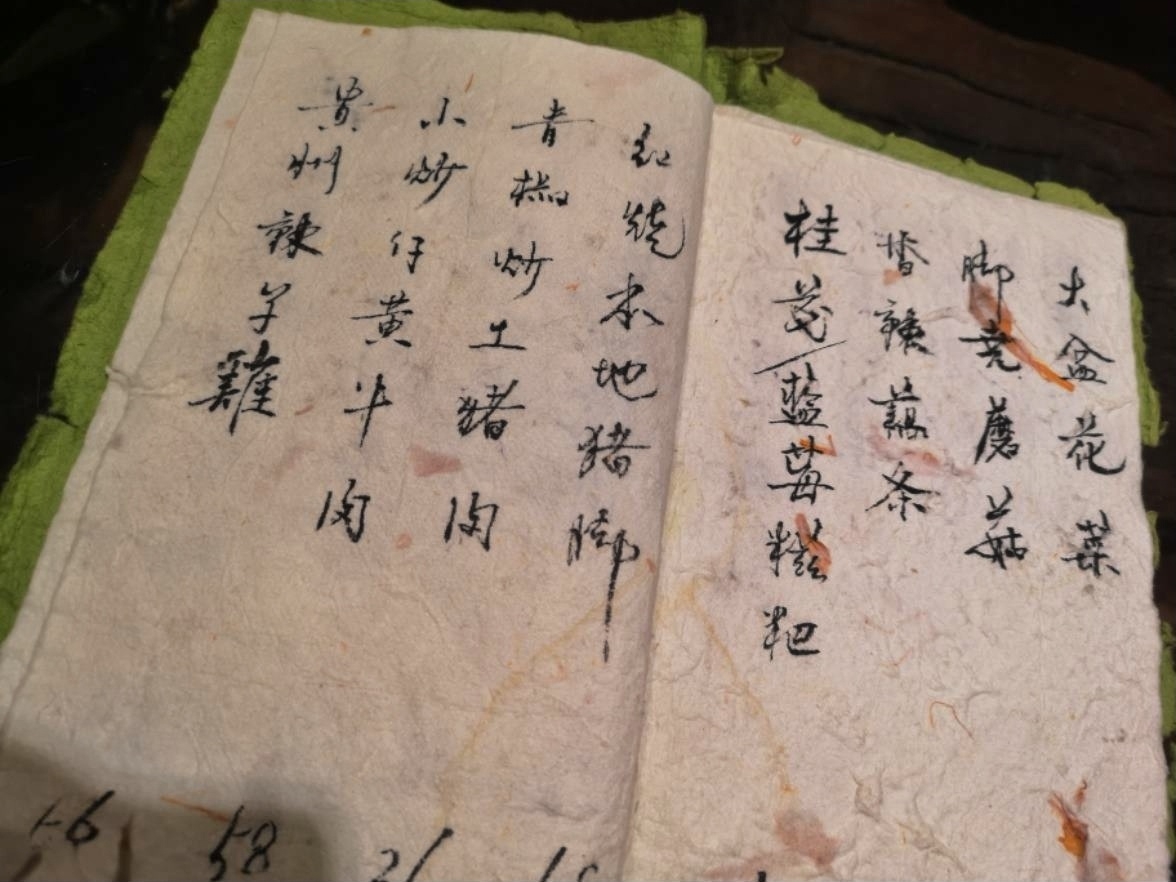 大盆花菜
脚尧蘑菇
香辣藕条
桂花/蓝莓糍粑
红烧本地猪脚
青椒炒土猪肉
小炒仔黄牛肉
贵州辣子雞
58
56